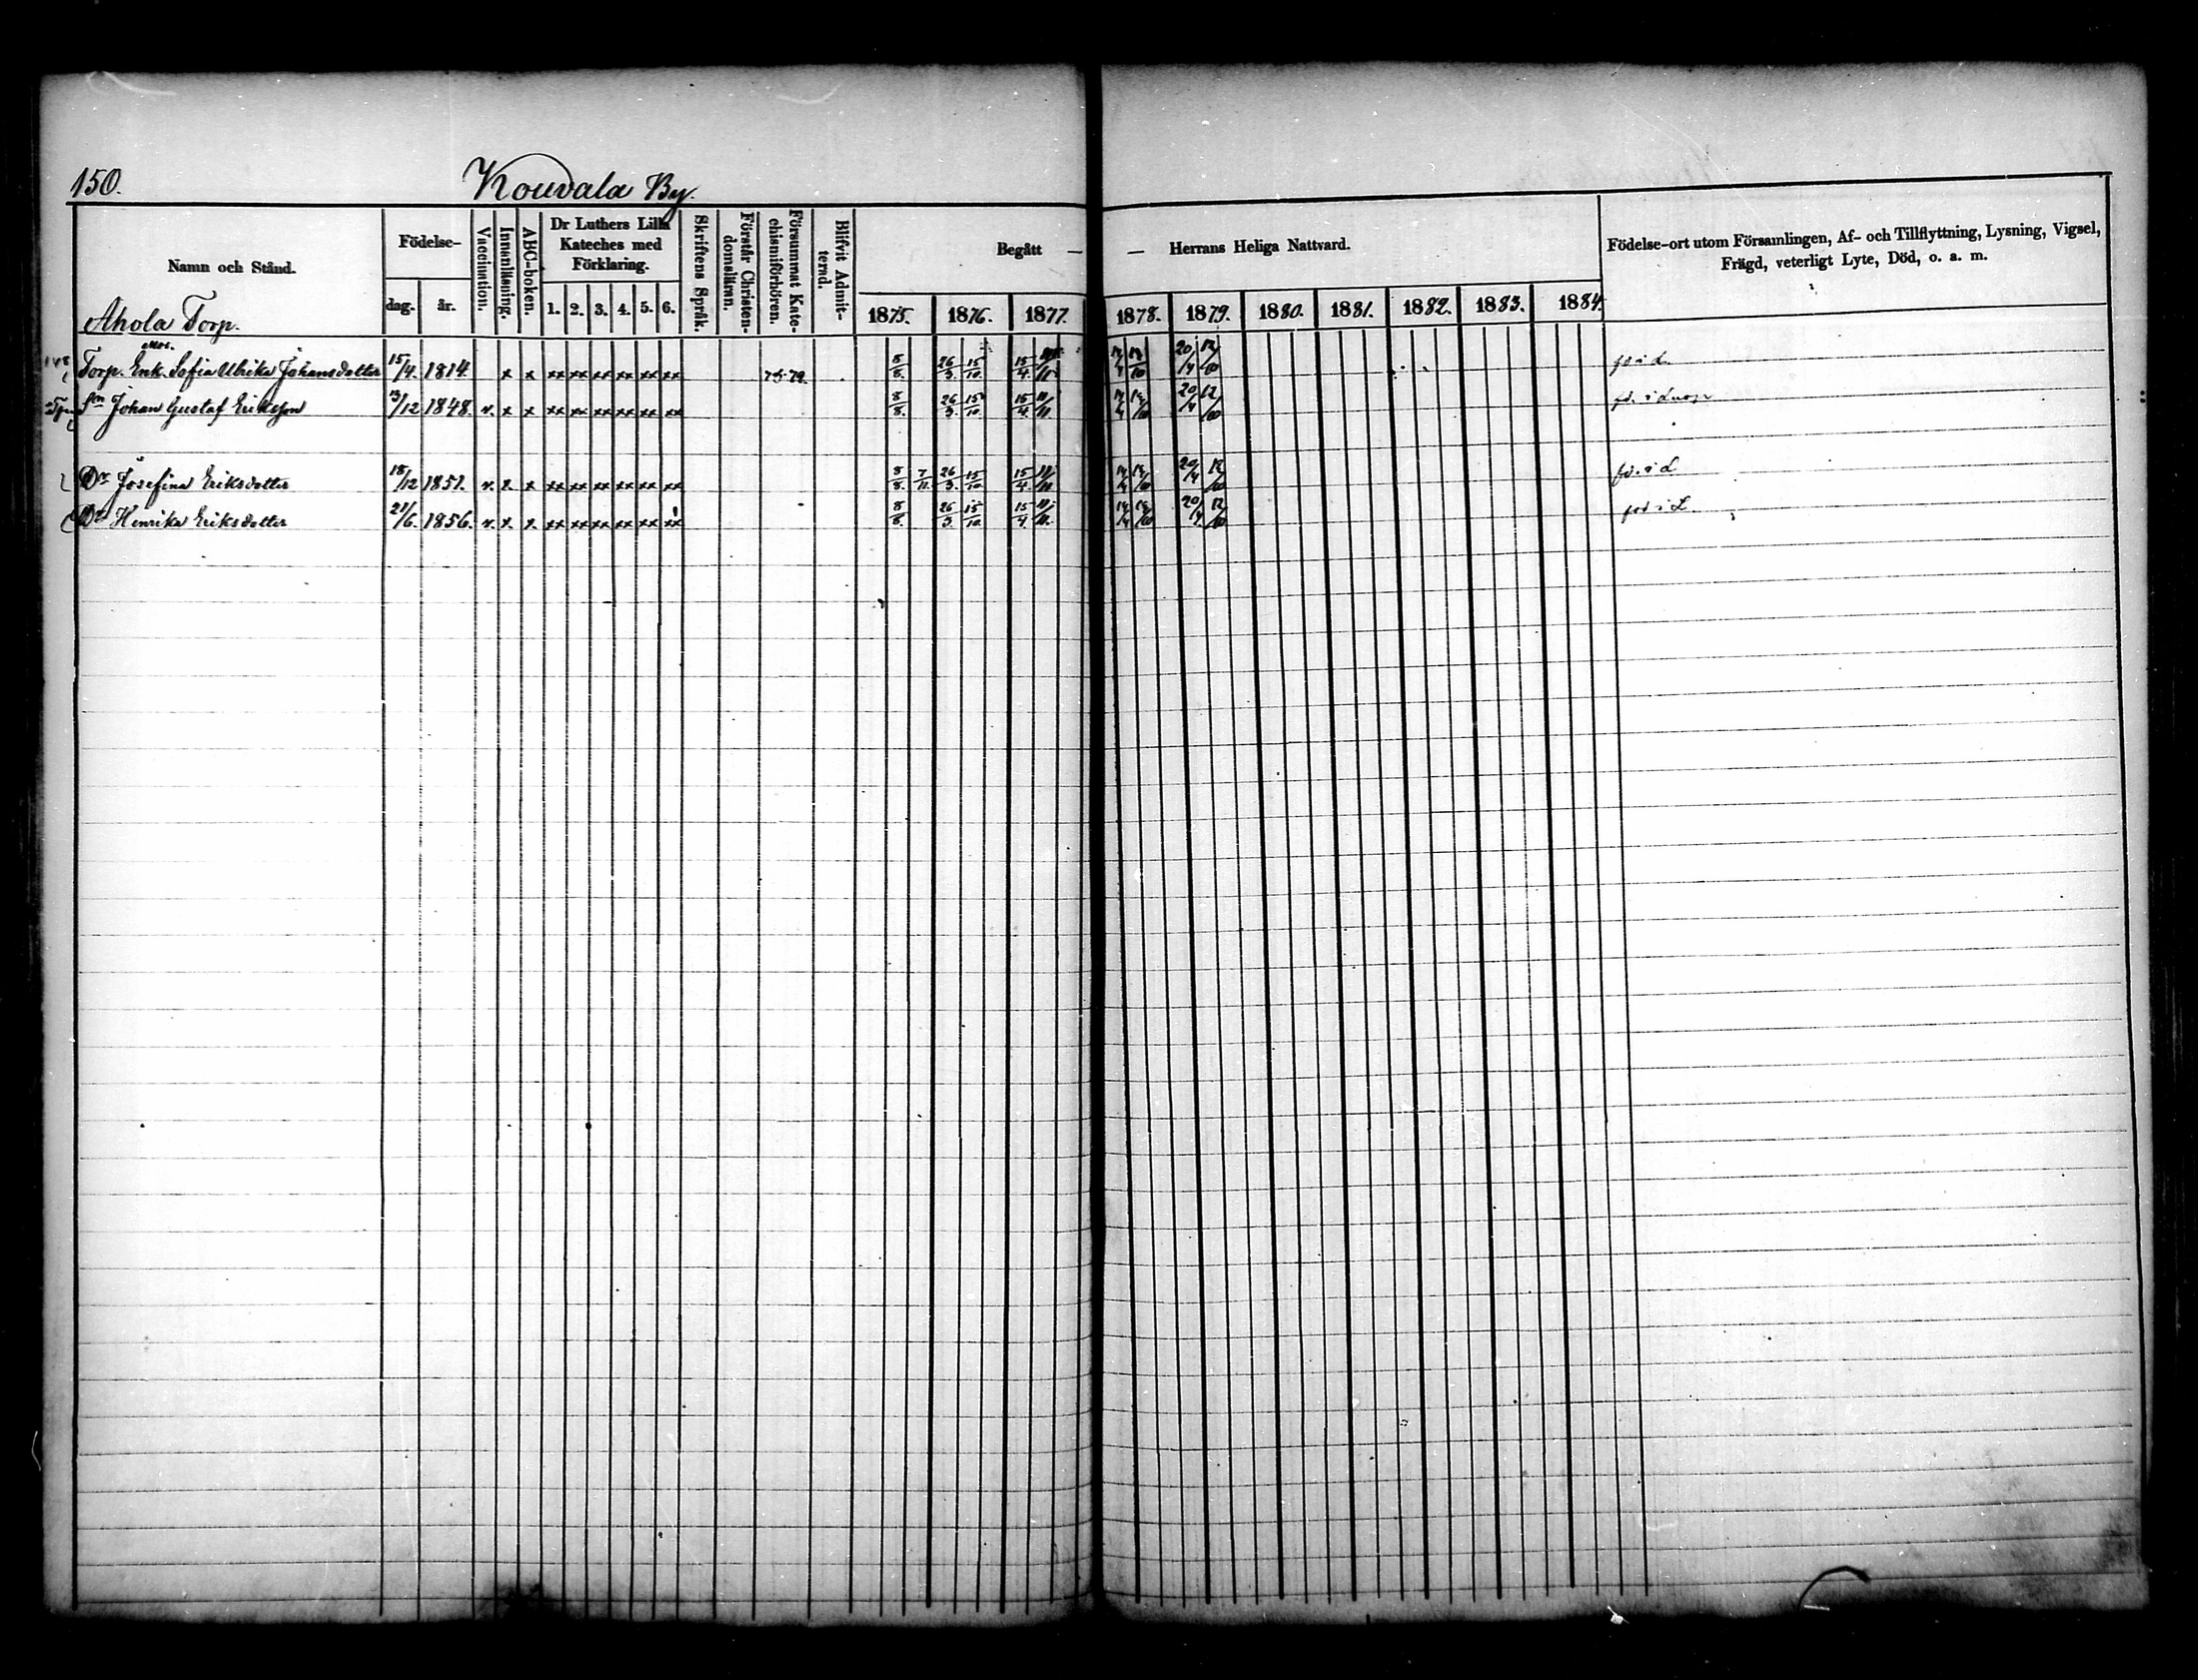 150. Kouvala By.
Namn och Stånd. Födelse- dag. år. Vaccination. Innanläsning. ABC-boken. Dr Luthers Lilla Kateches med Förklaring. 1. 2. 3. 4. 5. 6. Skriftens Språk. Förstår Christendomsläran. Försummat Katechismiförhören. Blifvit Admitterad. Begått — — Herrans Heliga Nattvard. 1875. 1876. 1877. 1878. 1879. 1880. 1881. 1882. 1883. 1884. Födelse-ort utom Församlingen, Af- och Tillflyttning, Lysning, Vigsel, Frägd, veterligt Lyte, Död, o. a. m.
Ahola Torp.
Torp. Enk. Sofia Ulrika Johansdotter 15/4. 1814. x x xx xx xx xx xx xx 8/8. 26/3. 15/10. 15/4.
Sn Johan Gustaf Eriksson 13/12 1848. v. x x xx xx xx xx xx xx 8/8. 26/3. 15/10. 15/4.
Dr Josefina Eriksdotter 18/12 1851. v. x. x xx xx xx xx xx xx 8/8. 7/11. 26/3. 15/10. 15/4. fö. i L
Dr Henrika Eriksdotter 21/6. 1856. v. x. x. xx xx xx xx xx xx 8/8. 26/3. 15/10. 15/4